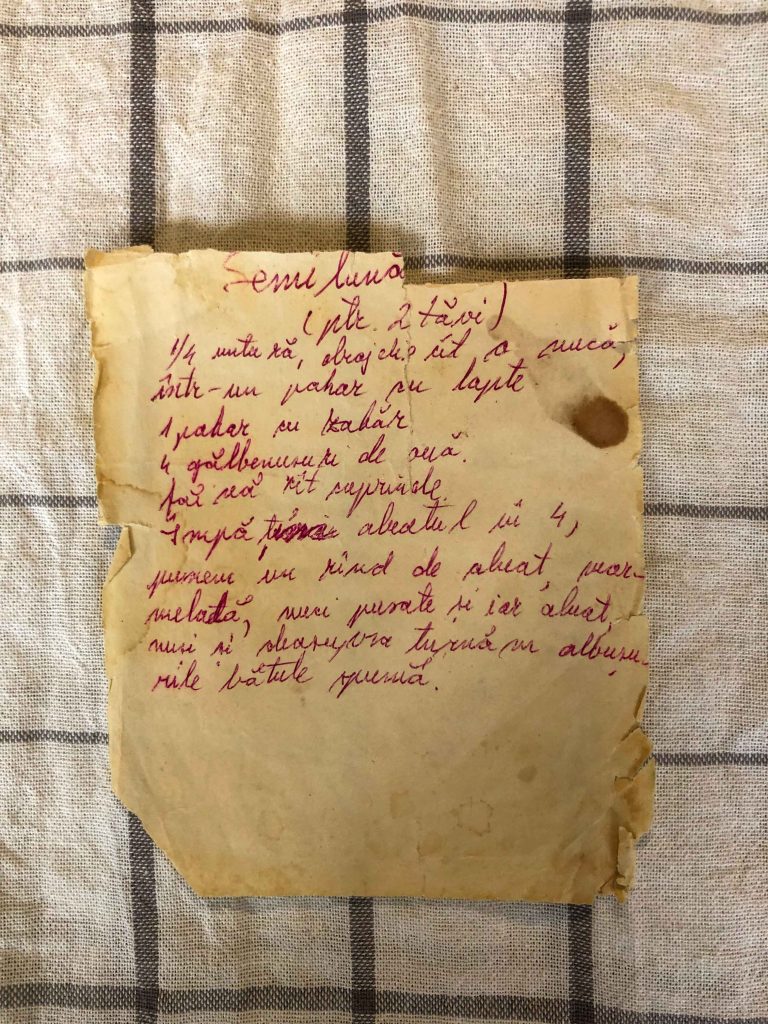 Semilună
(ptr. 2 tăvi)
1/4 untură, drojdie cît o nucă,
într-un pahar cu lapte
1 pahar cu zahăr
4 gălbenusuri de ouă.
făină cît cuprinde.
Împă aluatul în 4,
punem un rînd de aluat, mar-
meladă, nuci pisate si iar aluat,
nuci si deasupra turnăm albusu-
rile bătute spumă.